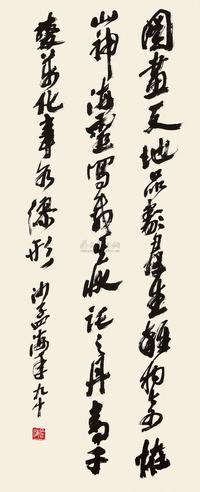 圖畫天地品類羣生雜物奇怪
山神海靈寫載其狀託之丹青千
變萬化事各繆形 沙孟海年九十